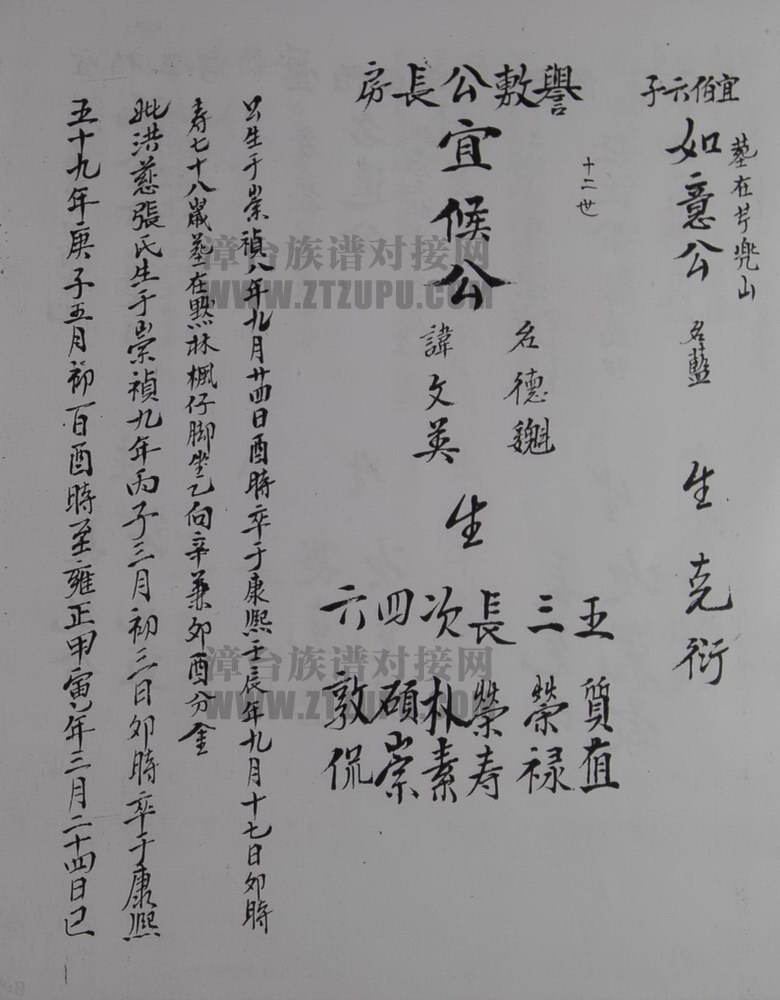 宜伯六子
如意公
墓在芹兜山
名藍
生克衍
譽敷公長房
十二世
宜候公
名德魏
諱文英
生
長榮寿
次朴素
三榮禄
四碩崇
五質直
六敦侃
公生于崇禎八年九月廿四日酉時卒于康熙壬辰年九月十七日卯時
寿七十八歲葬在點林楓仔脚坐乙向辛兼卯酉分金
妣洪慈張氏生于崇禎九年丙子三月初三日卯時卒于康熙
五十九年庚子五月初一日酉時至雍正甲寅年三月二十四日巳
漳台族谱对接网
WWW.ZTZUPU.COM
漳台族谱对接网
WWW.ZTZUPU.COM